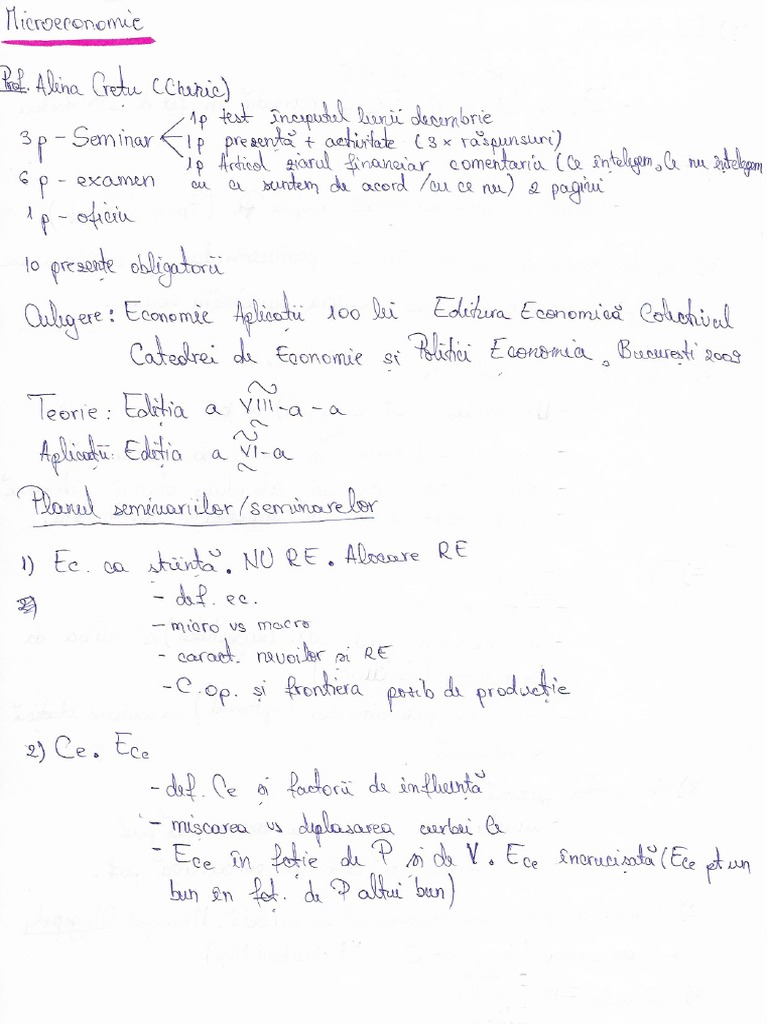 Microeconomie
Prof. Alina Crețu (Chiric)
3p - Seminar
1p test începutul lunii decembrie
1p prezență + activitate (3 x răspunsuri)
1p Articol ziarul financiar comentariu (Ce înțelegem, Ce nu înțelegem
cu ce suntem de acord / cu ce nu) 2 pagini
6p - examen
1p - oficiu
10 prezențe obligatorii
Culegere: Economie Aplicații 100 lei Editura Economică Colectivul
Catedrei de Economie și Politici Economice, București 2009
Teorie: Ediția a VIII-a - a
Aplicații: Ediția a VI-a
Planul seminariilor/seminarelor
1) Ec. ca știință. NU RE. Alocare RE
- def. ec.
- micro vs macro
- caract. nevoilor și RE
- C.op. și frontiera posib de producție
2) Ce. Ece
- def. Ce și factorii de influență
- mișcarea vs deplasarea curbei Ce
- Ece în fcție de P și de V. Ece încrucișată (Ece pt un
bun în fcț. de P altui bun)